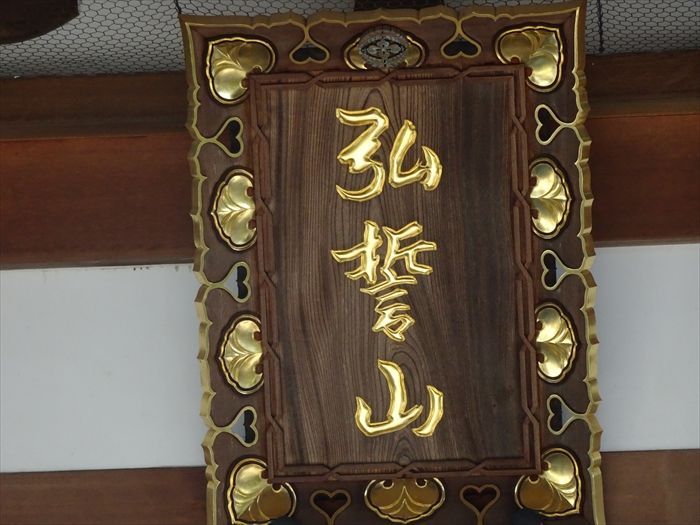 弘誓山